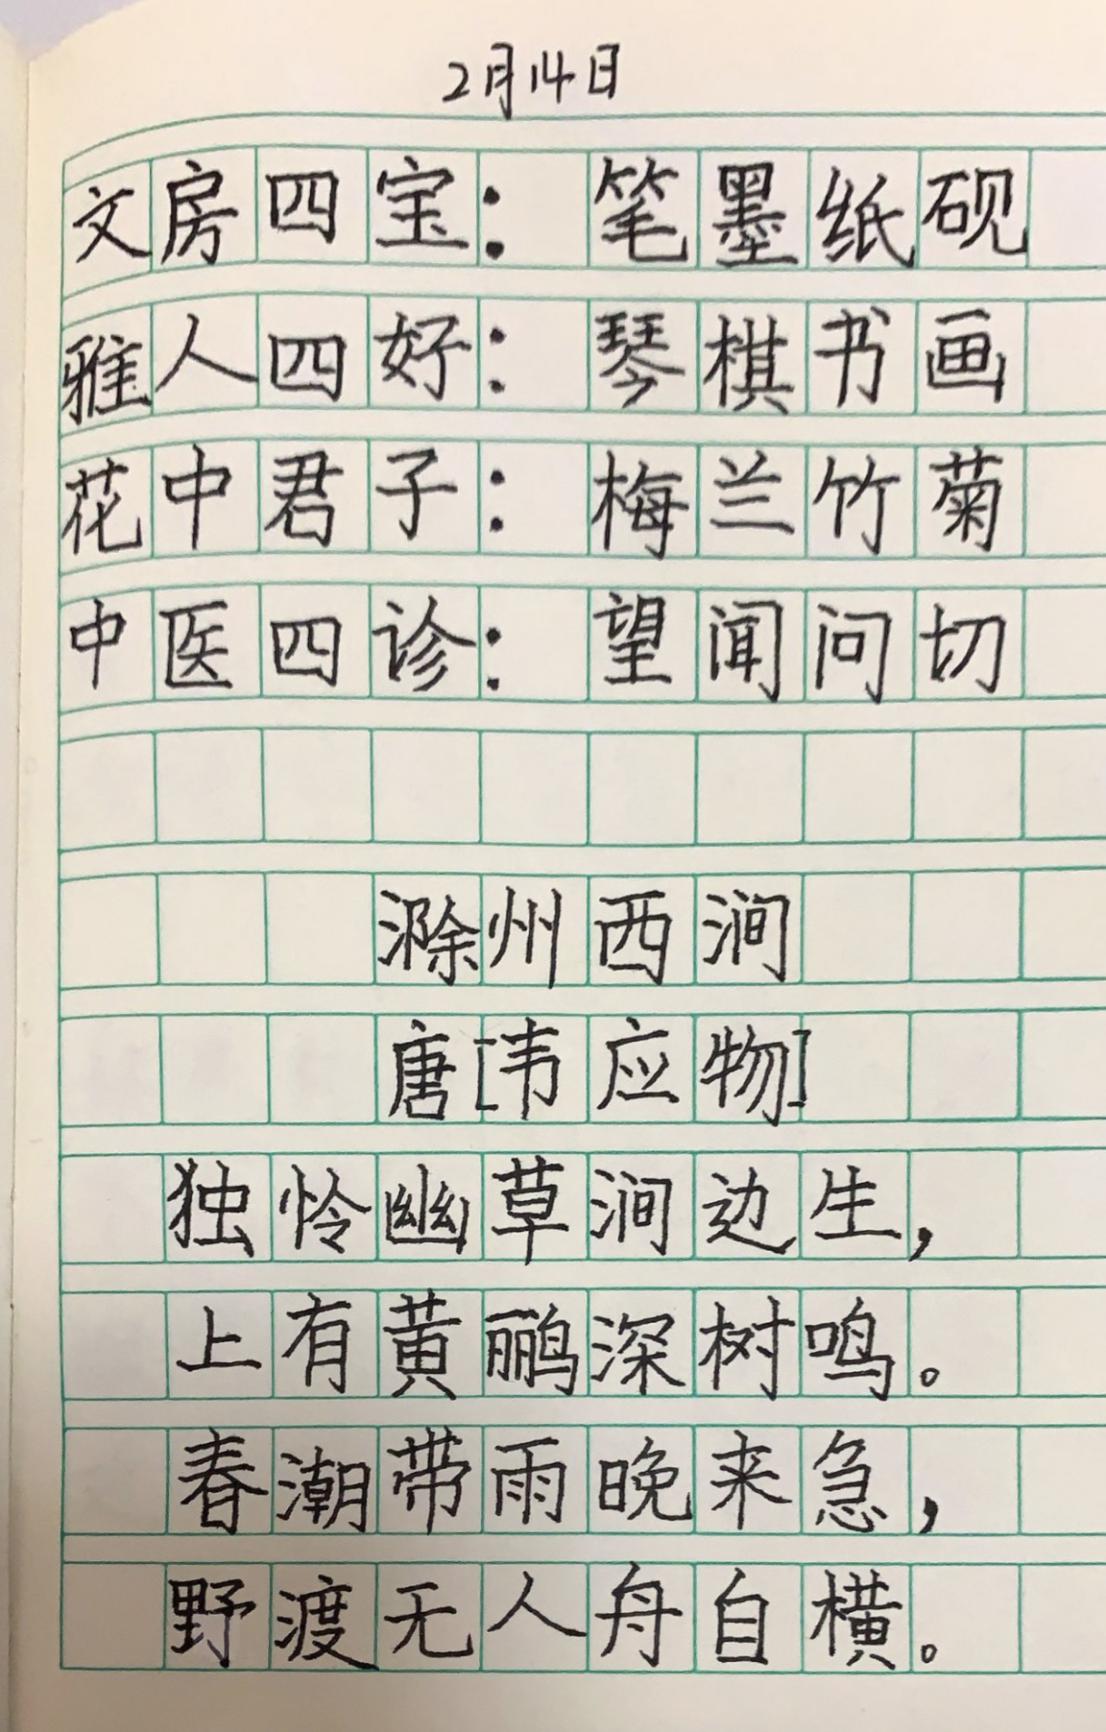 2月14日
文房四宝：笔墨纸砚
雅人四好：琴棋书画
花中君子：梅兰竹菊
中医四诊：望闻问切
滁州西涧
唐[韦应物]
独怜幽草涧边生，
上有黄鹂深树鸣。
春潮带雨晚来急，
野渡无人舟自横。